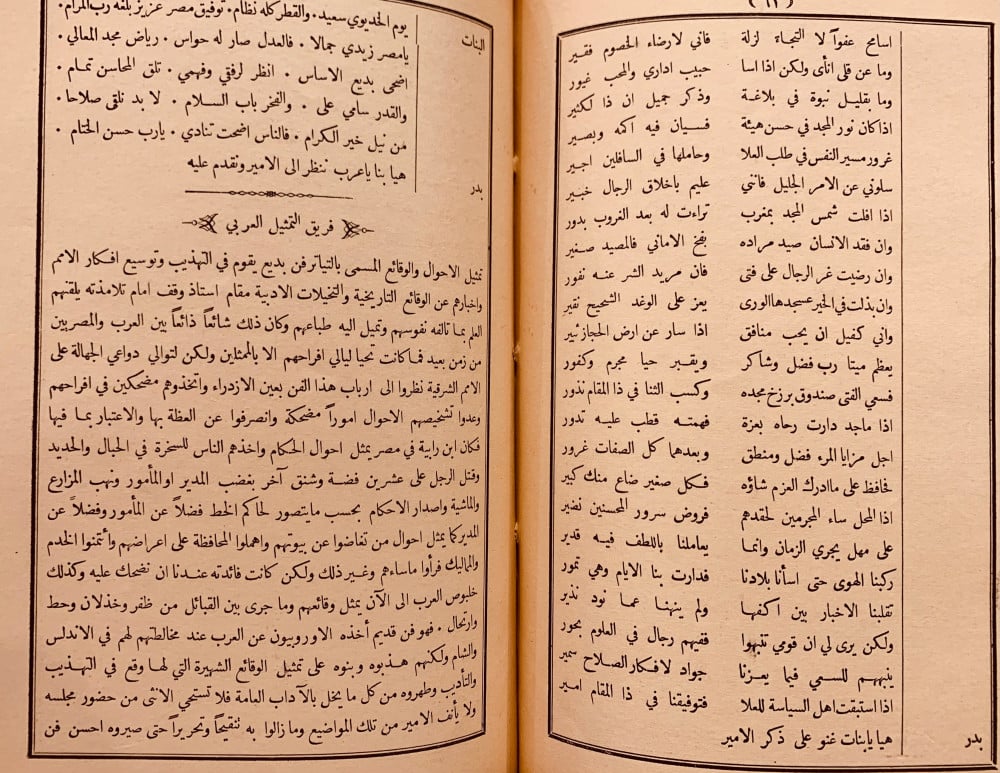 (٦٢)
اسامح عفواً لا التجاءً لزلة فاني لارضاء الخصوم فقير
وما عن قلى انأى ولكن اذا اسا حبيب اداري والمحب غيور
وما بقليل نبوة في بلاغة وذكر جميل ان ذا لكثير
اذا كان نور المجد في حسن هيئة فسيان فيه اكمه وبصير
غرور مسير النفس في طلب العلا وحاملها في السافلين اجير
سلوني عن الامر الجليل فانني عليم باخلاق الرجال خبير
اذا افلت شمس المجد بمغرب تراءت له بعد الغروب بدور
وان فقد الانسان صيد مراده بفخ الاماني فالمصيد صغير
وان رضيت غر الرجال على فتى فان مريد الشر عنه نفور
وان بذلت في الخير عسجدها الورى يعز على الوغد الشحيح نقير
واني كفيل ان يجب منافق اذا سار عن ارض الحجاز ثبير
يعظم ميتا رب فضل وشاكر ويقبر حيا مجرم وكفور
فسمي الفتى صندوق برزخ مجده وكسب الثنا في ذا المقام نذور
اذا ماجد دارت رحاه بعزة فهمته قطب عليه تدور
اجل مزايا المرء فضل ومنطق وبعدهما كل الصفات غرور
فحافظ على ما ادرك العزم شاؤه فكل صغير ضاع منك كبير
اذا المحل ساء المجرمين لحقدهم فروض سرور المحسنين نضير
على مهل يجري الزمان وانما يعاملنا باللطف فيه قدير
ركبنا الهوى حتى اسأنا بلادنا فدارت بنا الايام وهي تمور
تقلبنا الاخبار بين اكفها ولم ينهنا عما نود نذير
ولكن يرى لي ان قومي تنبهوا ففيهم رجال في العلوم بحور
ينبههم للسعي فيما يعزنا جواد لافكار الصلاح سمير
اذا استبقت اهل السياسة للعلا فتوفيقنا في ذا المقام امير
بدر هيا يابنات غنو على ذكر الامير
يوم الخديوي سعيد . والقطر كله نظام . توفيق مصر عزيز بلغه رب المرام .
البنات يامصر زيدي جمالا . فالعدل صار له حواس . رياض مجد المعالي .
اضحى بديع الاساس . انظر لرفقي وفهمي . تلق المحاسن تمام .
والقدر سامي على . والفخر باب السلام . لا بد نلقى صلاحا .
من نيل خير الكرام . فالناس اضحت تنادي . يارب حسن الختام .
بدر هيا بنا ياعرب ننظر الى الامير ونقدم عليه
فريق التمثيل العربي
تمثيل الاحوال والوقائع المسمى بالتياترفن بديع يقوم في التهذيب وتوسيع افكار الامم
واخبارهم عن الوقائع التاريخية والتخيلات الادبية مقام استاذ وقف امام تلامذته يلقنهم
العلم بما تالفه نفوسهم وتميل اليه طباعهم وكان ذلك شائعاً ذائعاً بين العرب والمصريين
من زمن بعيد فما كانت تحيا ليالي افراحهم الا بالممثلين ولكن لتوالي دواعي الجهالة على
الامم الشرقية نظروا الى ارباب هذا الفن بعين الازدراء واتخذوهم مضحكين في افراحهم
وعدوا تشخيصهم الاحوال اموراً مضحكة وانصرفوا عن العظة بها والاعتبار بما فيها
فكان ابن رابية في مصر يمثل احوال الحكام واخذهم الناس للسخرة في الحبال والحديد
وقتل الرجل على عشرين فضة وشنق آخر بغضب المدير او المأمور ونهب المزارع
والماشية واصدار الاحكام بحسب مايتصور لحاكم الخط فضلاً عن المأمور وفضلاً عن
المدير كما يمثل احوال من تغاضوا عن بيوتهم واهملوا المحافظة على اعراضهم وأتمنوا الخدم
والماليك فرأوا ماساءهم وغير ذلك ولكن كانت فائدته عندنا ان نضحك عليه وكذلك
خلبوص العرب الى الآن يمثل وقائعهم وما جرى بين القبائل من ظفر وخذلان وحط
وارتحال . فهو فن قديم أخذه الاوروبيون عن العرب عند مخالطتهم لهم في الاندلس
والشام ولكنهم هذبوه وبنوه على تمثيل الوقائع الشهيرة التي لها وقع في التهذيب
والتأديب وطهروه من كل ما يخل بالآداب العامة فلا تستحي الانثى من حضور مجلسه
ولا يأنف الامير من تلك المواضيع وما زالوا به تنقيحاً وتحريراً حتى صيروه احسن فن